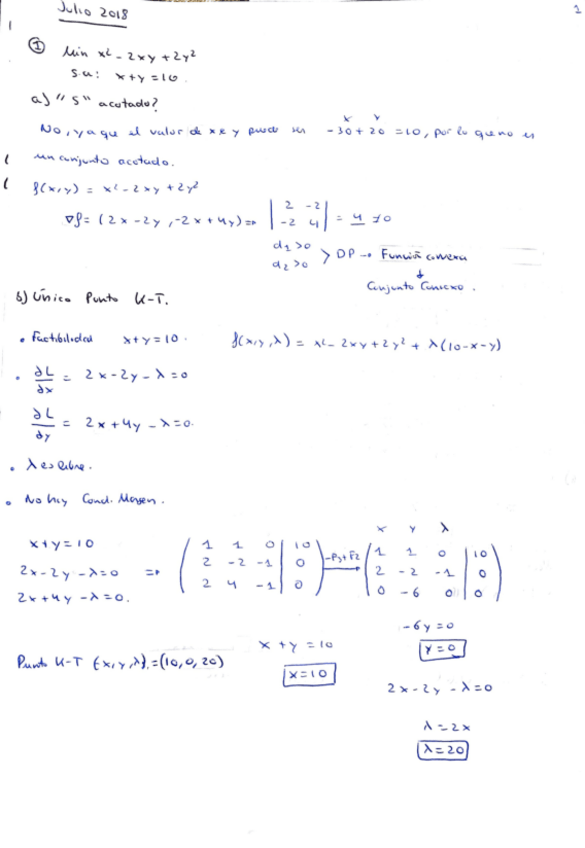 Julio 2018
2
① Min x² - 2xy + 2y²
s.a: x+y = 10
a) "S" acotado?
x y
No, ya que el valor de x e y puede ser -30 + 20 = 10, por lo que no es
un conjunto acotado.
f(x,y) = x² - 2xy + 2y²
∇f = (2x - 2y, -2x + 4y) => | 2 -2 | = 4 ≠ 0
| -2 4 |
d₁ > 0
d₂ > 0 > DP → Función convexa
↓
Conjunto Convexo.
b) Único Punto K-T.
• Factibilidad x+y = 10. f(x,y,λ) = x² - 2xy + 2y² + λ(10-x-y)
• ∂L/∂x = 2x - 2y - λ = 0
∂L/∂y = 2x + 4y - λ = 0.
• λ es libre.
• No hay Cond. Margen.
x y λ
x+y = 10 ( 1 1 0 | 10 ) ( 1 1 0 | 10 )
2x - 2y - λ = 0 => ( 2 -2 -1 | 0 ) -F3+F2 → ( 2 -2 -1 | 0 )
2x + 4y - λ = 0. ( 2 4 -1 | 0 ) ( 0 -6 0 | 0 )
-6y = 0
x + y = 10 y = 0
Punto K-T (x,y,λ) = (10,0,20) x = 10
2x - 2y - λ = 0
λ = 2x
λ = 20